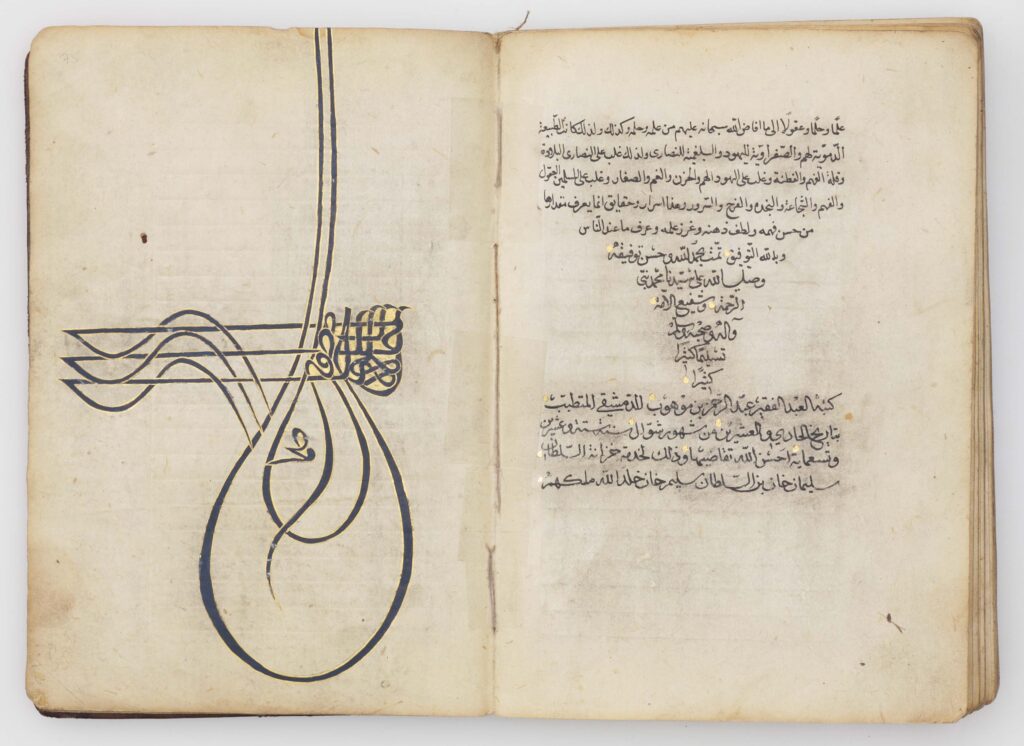 علمًا وحلمًا وعقولًا الى ما افاض الله سبحانه عليهم من علمه وحلمه وكذلك ولذلك كانت الطبيعة
الدموية لهم والصفراوية لليهود والبلغمية للنصارى ولذلك غلب على النصارى البلادة
وقلة الفهم والفطنة وغلب على اليهود الهم والحزن والغم والصغار وغلب على المسلمين العقول
والفهم والشجاعة والنجدة والفرح والسرور وهذا اسرار وحقايق انما يعرف مقدارها
من حسن فهمه ولطف ذهنه وغزر علمه وعرف ما عند الناس
وبالله التوفيق تمت بحمد الله وحسن توفيقه
وصلى الله على سيدنا محمد نبى
الرحمة وشفيع الامة
وآله وصحبه وسلم
تسليمًا كثيرا
كثيرًا
كتبه العبد الفقير عبد الرحمن بن موهوب الدمشقي المتطبب
بتاريخ الحادي والعشرين من شهور شوال سنة ستة وعشرين
وتسعماية احسن الله تقاضيها وذلك لخدمة خزانة السلطان
سليمان خان بن السلطان سليم خان خلد الله ملكهم